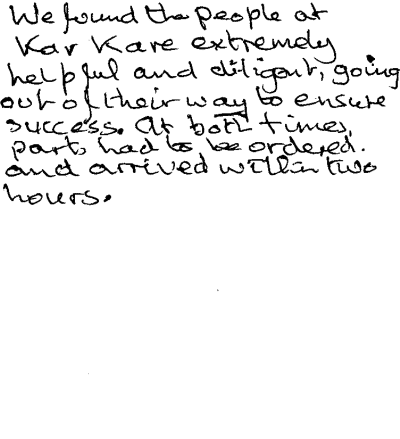 We found the people at
Kar Kare extremely
helpful and diligent, going
out of their way to ensure
success. At both times,
parts had to be ordered.
and arrived within two
hours.